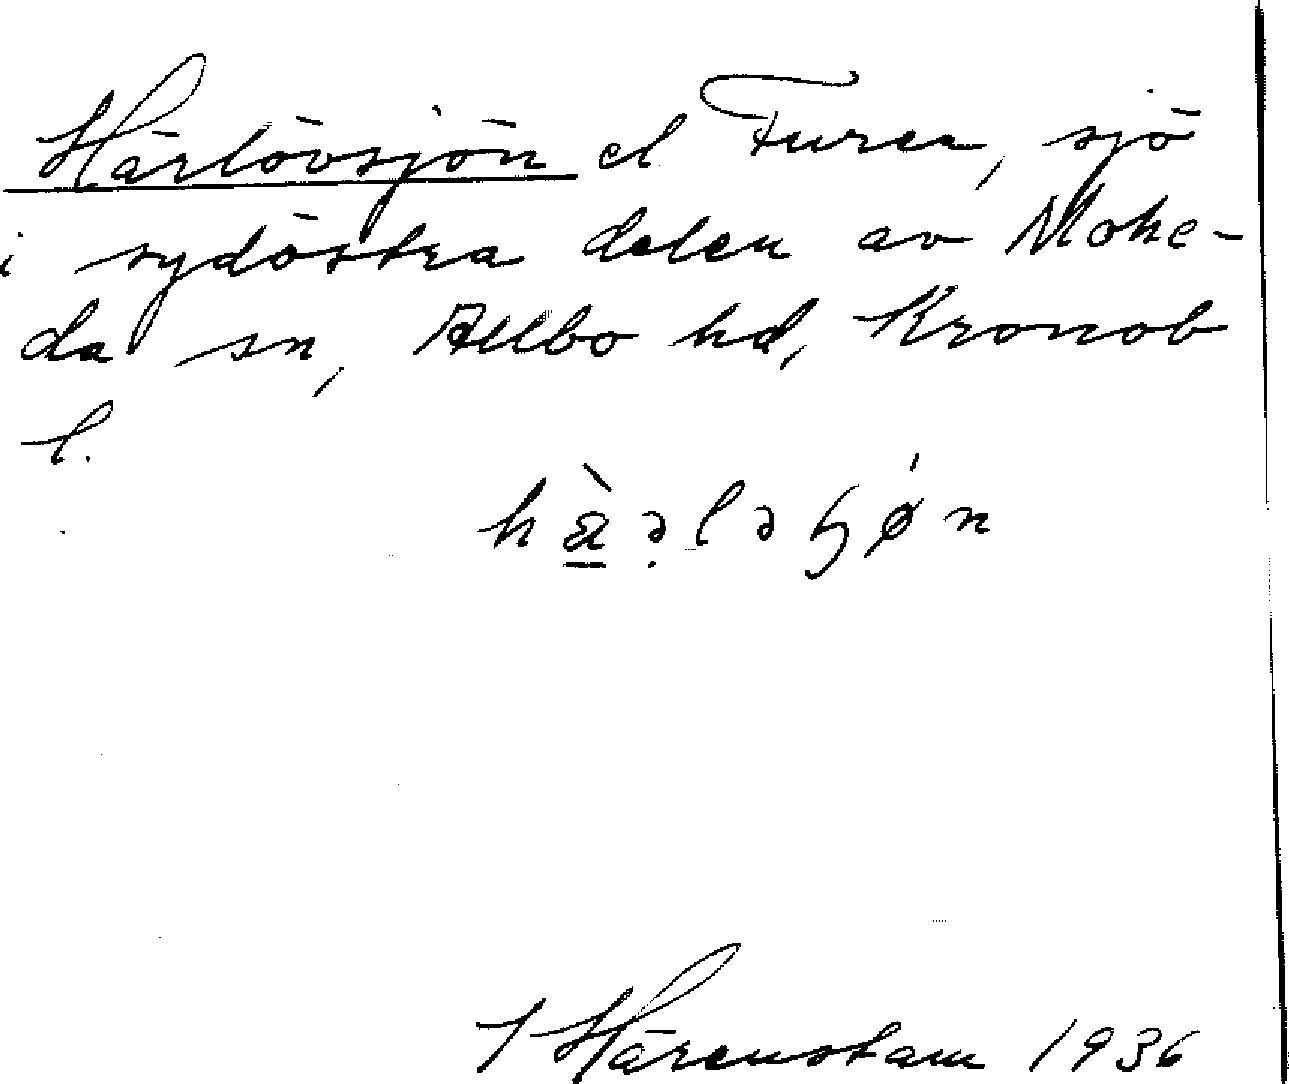 Härlövsjön el Furen, sjö
i sydöstra delen av Mohe-
da sn, Allbo hd, Kronob
l.
Härenstam 1936